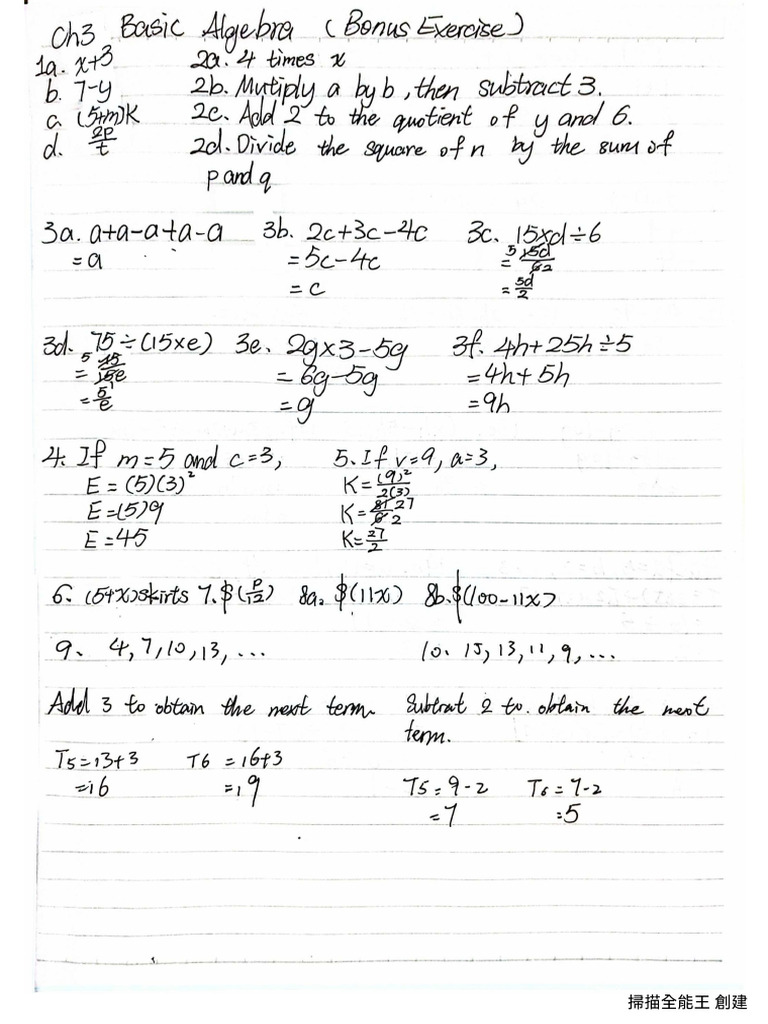 Ch3 Basic Algebra (Bonus Exercise)
1a. x+3 2a. 4 times x
b. 7-y 2b. Mutiply a by b, then subtract 3.
c. (5+m)K 2c. Add 2 to the quotient of y and 6.
d. 2p/t 2d. Divide the square of n by the sum of
p and q
3a. a+a-a+a-a 3b. 2c+3c-4c 3c. 15×d÷6
=a =5c-4c = 5 15d/6 2
=c = 5d/2
3d. 75÷(15×e) 3e. 2g×3-5g 3f. 4h+25h÷5
= 5 /15e =6g-5g =4h+5h
= 5/e =g =9h
4. If m=5 and c=3, 5. If v=9, a=3,
E=(5)(3)² K=(9)²/2(3)
E=(5)9 K=81/6 27 2
E=45 K=27/2
6. (5+x)skirts 7. $(p/12) 8a. $(11x) 8b. $(100-11x)
9. 4,7,10,13,... 10. 15,13,11,9,...
Add 3 to obtain the next term. Subtrat 2 to obtain the next
term.
T5=13+3 T6 =16+3
=16 =19
T5=9-2 T6=7-2
=7 =5
掃描全能王 創建